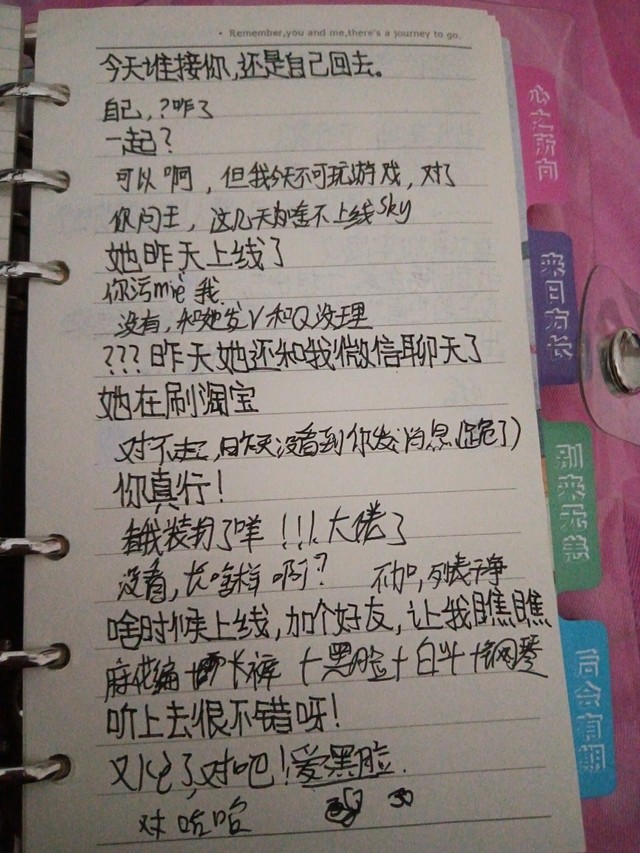 Remember,you and me,there's a journey to go.
今天谁接你,还是自己回去。
自己,?咋了
一起?
可以啊,但我今天不可玩游戏,对了
你问王,这几天为啥不上线sky
她昨天上线了
你污miè我
没有,和她发V和Q没理
???昨天她还和我微信聊天了
她在刷淘宝
对不起,昨天没看到你发消息(跪了)
你真行!
我装扮了咩!!!大佬了
没看,长啥样啊? 不加,列表干净
啥时候上线,加个好友,让我瞧瞧
麻花编 长裤+黑脸+白斗+钢琴
听上去很不错呀!
又忆了,对吧!爱黑脸.
对哈哈
心之所向
来日方长
别来无恙
后会有期